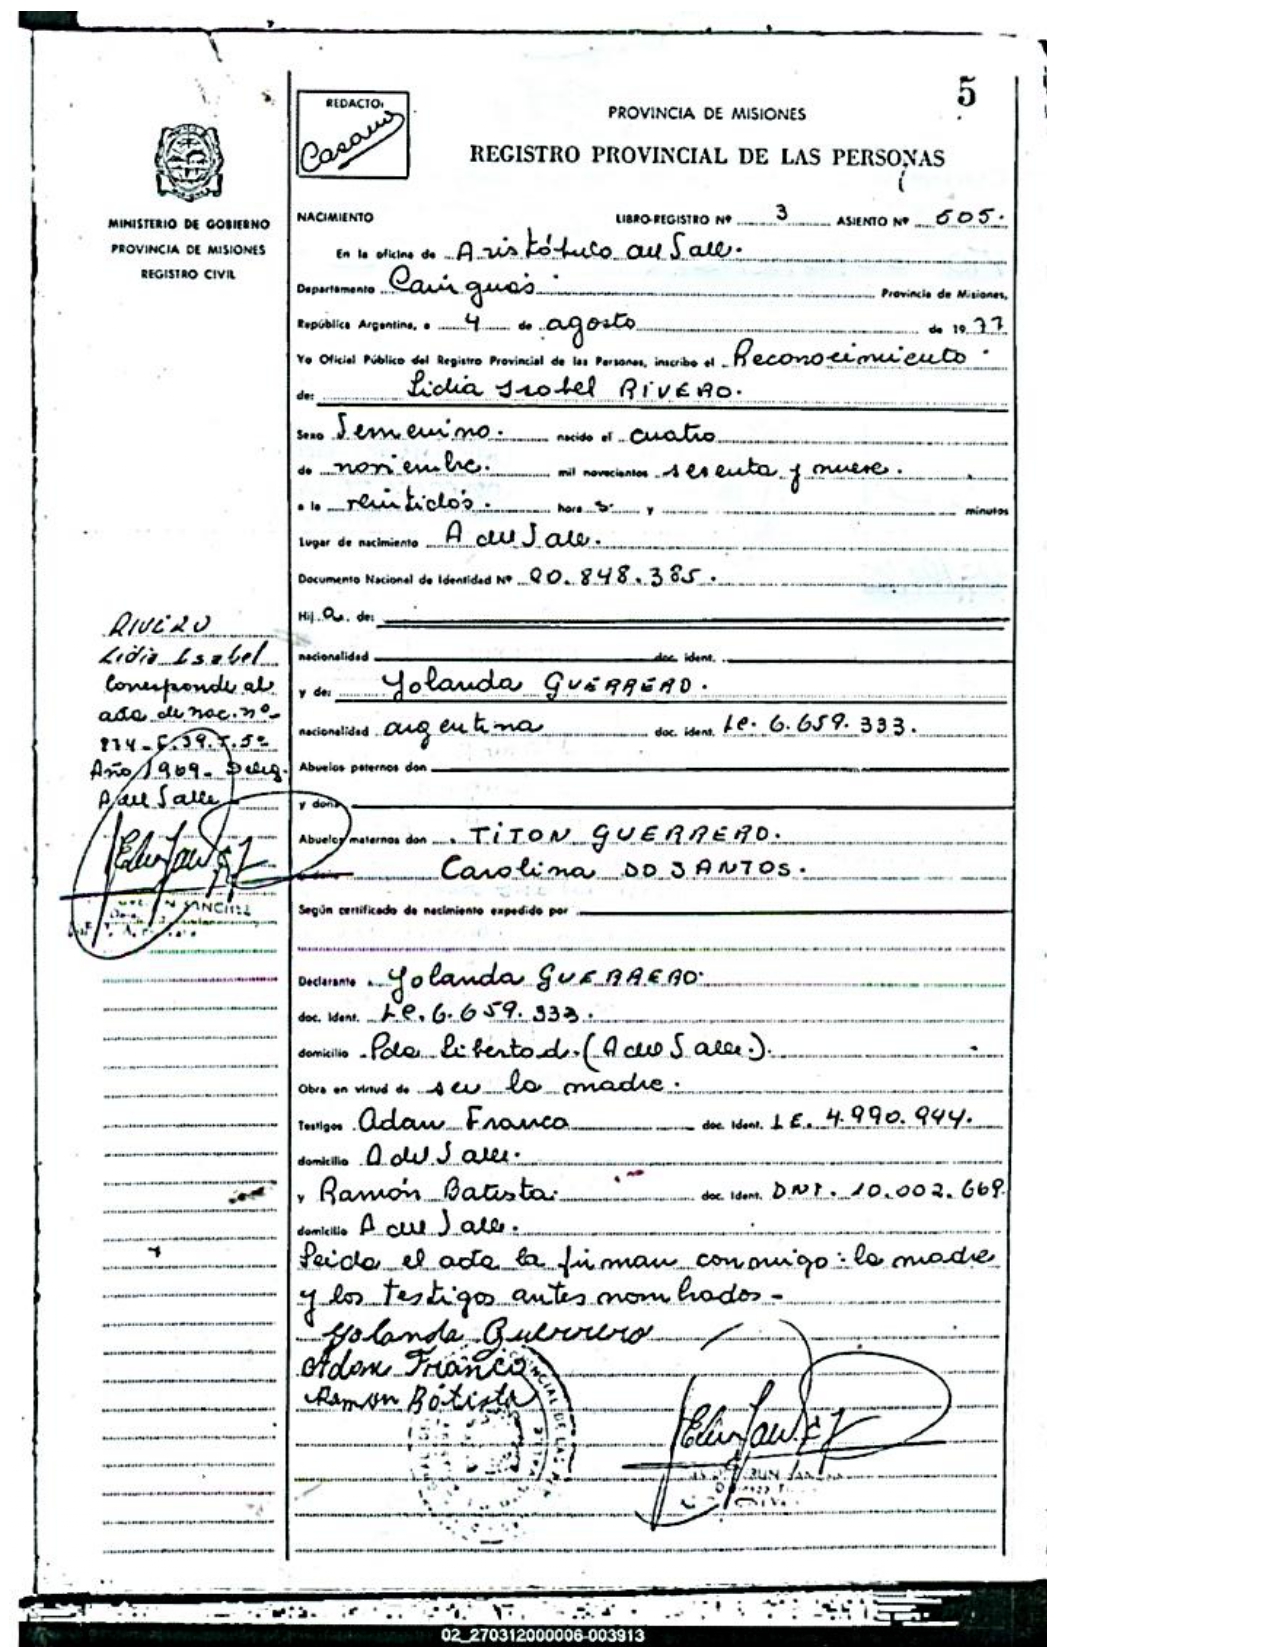 5
REDACTO:
PROVINCIA DE MISIONES
REGISTRO PROVINCIAL DE LAS PERSONAS
MINISTERIO DE GOBIERNO
PROVINCIA DE MISIONES
REGISTRO CIVIL
NACIMIENTO LIBRO-REGISTRO Nº 3 ASIENTO Nº 505.
En la oficina de Aristóbulo del Valle.
Departamento Cainguás Provincia de Misiones,
República Argentina, a 4 de agosto de 1977
Yo Oficial Público del Registro Provincial de las Personas, inscribo el Reconocimiento
de: Lidia Isabel RIVERO.
Sexo Femenino. nacido el cuatro
de noviembre. mil novecientos sesenta y nueve.
a la veintidós. hora s y minutos
Lugar de nacimiento A del Valle.
Documento Nacional de Identidad Nº 20.848.385.
Hij a. de:
nacionalidad doc. ident.
y de: Yolanda GUERRERO.
nacionalidad argentina doc. ident. LC. 6.659.333.
Abuelos paternos don
y doña
Abuelos maternos don TITON GUERRERO.
Carolina DO SANTOS.
Según certificado de nacimiento expedido por
RIVERO
Lidia Isabel
Corresponde al
acta de nac. nº
Año 1969 - Deleg.
A del Valle
Declarante Yolanda GUERRERO.
doc. ident. LC. 6.659.333.
domicilio Pda Libertad. (A del Valle.).
Obra en virtud de ser la madre.
Testigos Adan Franco doc. ident. L E. 4.990.944.
domicilio A del Valle.
y Ramón Batista. doc. ident. DNI. 10.002.669.
domicilio A del Valle.
Leida el acta la firman conmigo: la madre
y los testigos antes nombrados -
Yolanda Guerrero
Adan Franco
Ramon Batista
02_270312000006-003913